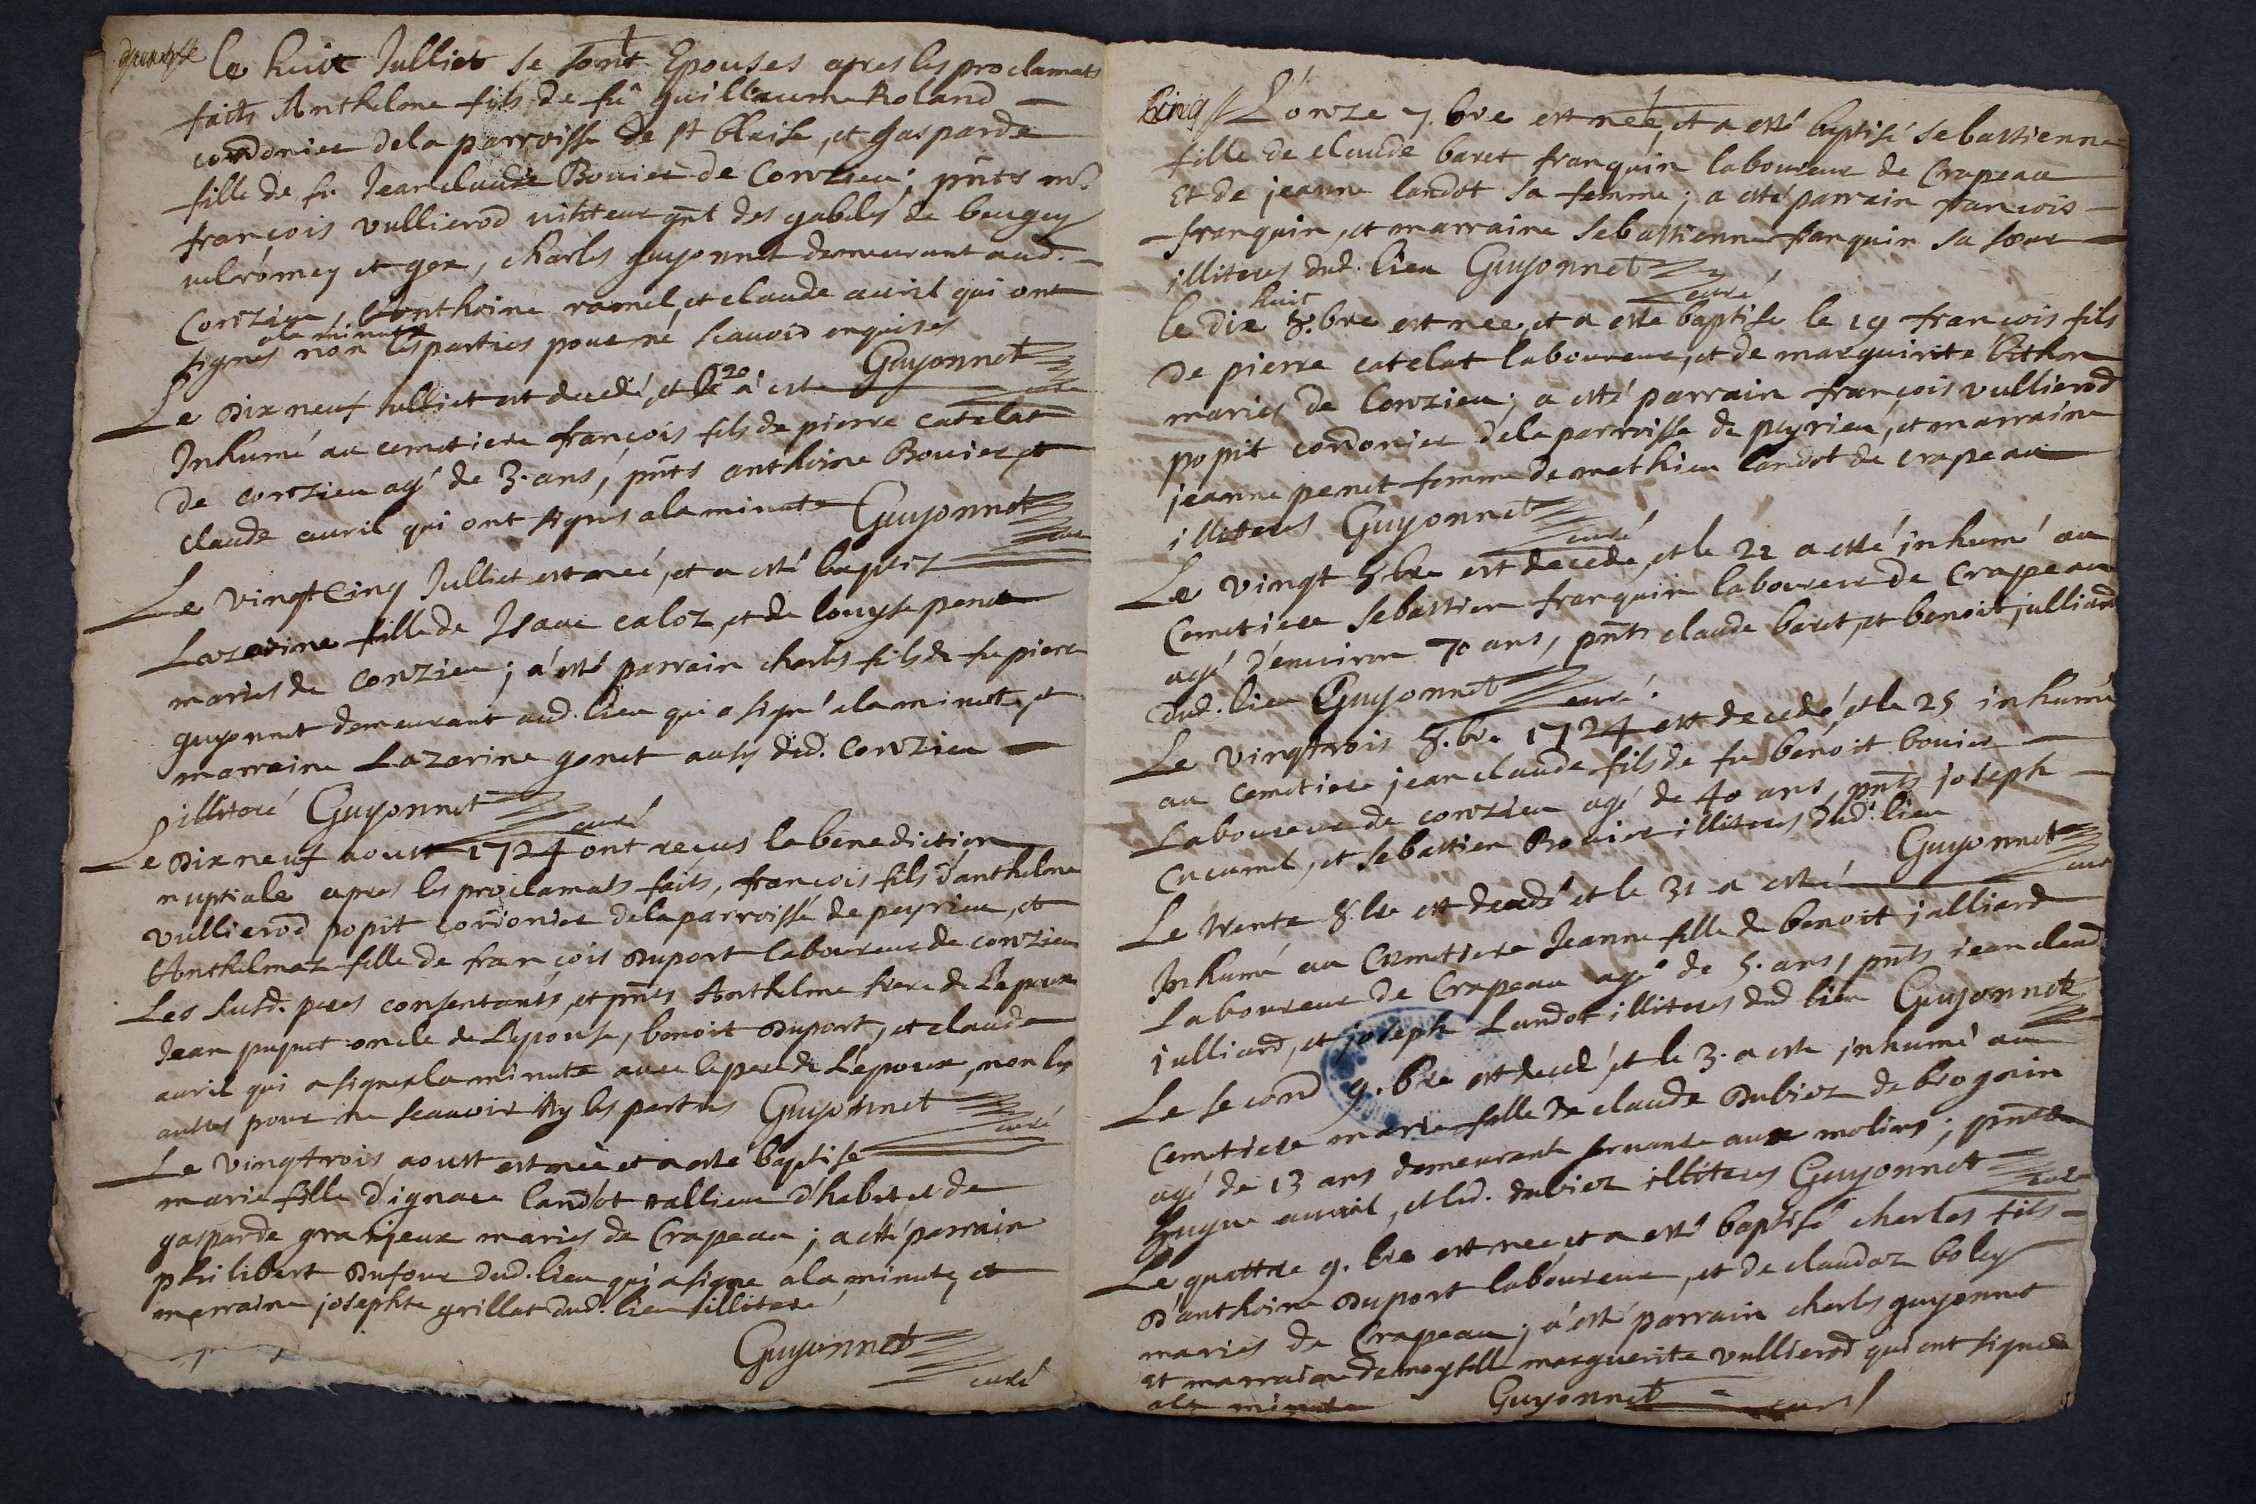 Le huit Julliet se sont Epouses apres les proclamats
faits Anthelme fils de fû guillaume Roland
cordonier dela parroisse de st blaise, et gasparde
fille de fu Jean claude Bouier de Conzieu; pnts mr.
françois vullierod visiteur gnl des gabeles de beugey
valromey et gex, charles guyonnet demeurant aud.
Conzieu, anthoine ramel, et claude auril qui ont
signes a la minute non les parties pour ne scauoir enquises
Guyonnet curé
Le dix neuf Julliet est decedé, et le 20 a esté
Inhumé au cemetiere françois fils de pierre catelat
de conzieu agé de 3. ans, pnts anthoine Bouier et
claude auril qui ont signes a la minute Guyonnet curé
Le vingt Cinq Julliet est neé, et a esté baptise
Lazarine fille de Isaac caloz, et de louyse penet
maries de conzieu; a esté parrain charles fils de fu pierre
guyonnet demeurant aud. lieu qui a signé a la minute, et
marraine Lazarine genet aussy dud. Conzieu
illiteré Guyonnet curé
Le dix neuf aoust 1724 ont reçus la benediction
nuptiale apres les proclamats faits, françois fils d'anthelme
vullierod popit cordonier dela parroisse de peyrieu, et
Anthelmaz fille de françois Duport laboureur de conzieu
Les susd. peres consentants, et pnts Anthelme frere de Lepoux
Jean puquet oncle de Lepouse, benoit Duport, et claude
auril qui a signer la minute auec le pere de L'epoux, non les
autres pour ne scauoir ny les parties Guyonnet curé
Le vingt trois aoust est neé et a esté baptise
marie fille d'ignace landot tallieur d'habit et de
gasparde granjeux maries de Crapeau; a esté parrain
philibert Dufour dud. lieu qui a signe a la minute, et
marraine josephte grillat dud. lieu illitere
Guyonnet curé
cinq L'onze 7.bre est neé, et a esté baptisé sebastienne
fille de claude baret franquin laboureur de Crapeau
Et de jeanne landot sa femme; a esté parrain françois
franquin, et marraine sebastienne franquin sa soeur
illiteres dud. lieu Guyonnet curé
le dix huit 8.bre est neé, et a esté baptise le 19 françois fils
de pierre catelat laboureur, et de marguirite bithon
maries de Conzieu; a esté parrain françois vullierod
popit cordonier dela parroisse de peyrieu, et marraine
jeanne penet femme de mathieu landot de crapeau
illiteres Guyonnet curé
Le vingt 8.bre est decede, et le 22 a esté inhumé au
Cemetiere sebastien franquin laboureur de Crapeau
agé d'enuiron 70 ans, pnts claude baret, et benoit julliard
dud. lieu Guyonnet curé.
Le vingt trois 8.bre 1724 est decedé, et le 25 inhumé
au cemetiere jean claude fils de fu benoit bouier
Laboureur de conzieu agé de 40 ans, pnts joseph
Cucumel, et sebastien Bouier illiteres dud. lieu
Guyonnet curé
Le trente 8.bre est decedé et le 31 a esté
Inhumé au Cemetiere Jeanne fille de benoit julliard
Laboureur de Crapeau agé de 5. ans, pnts jean claude
julliard, et joseph Landot illiteres dud lieu Guyonnet
Le second 9.bre est decedé, et le 3. a este inhumé au
Cemetiere marie fille de claude Dubiez de brognin
agé de 13 ans demeurante seruante aux molins; pnts
hugue auril, et led. dubiez illiteres Guyonnet curé
Le quattre 9.bre est neé et a esté baptisé charles fils
D'anthoine Duport laboureur, et de claudaz boley
maries de Crapeau; a esté parrain charles guyonnet
Et marraine demoyselle marguerite vullierod qui ont signes
a la minute Guyonnet curé